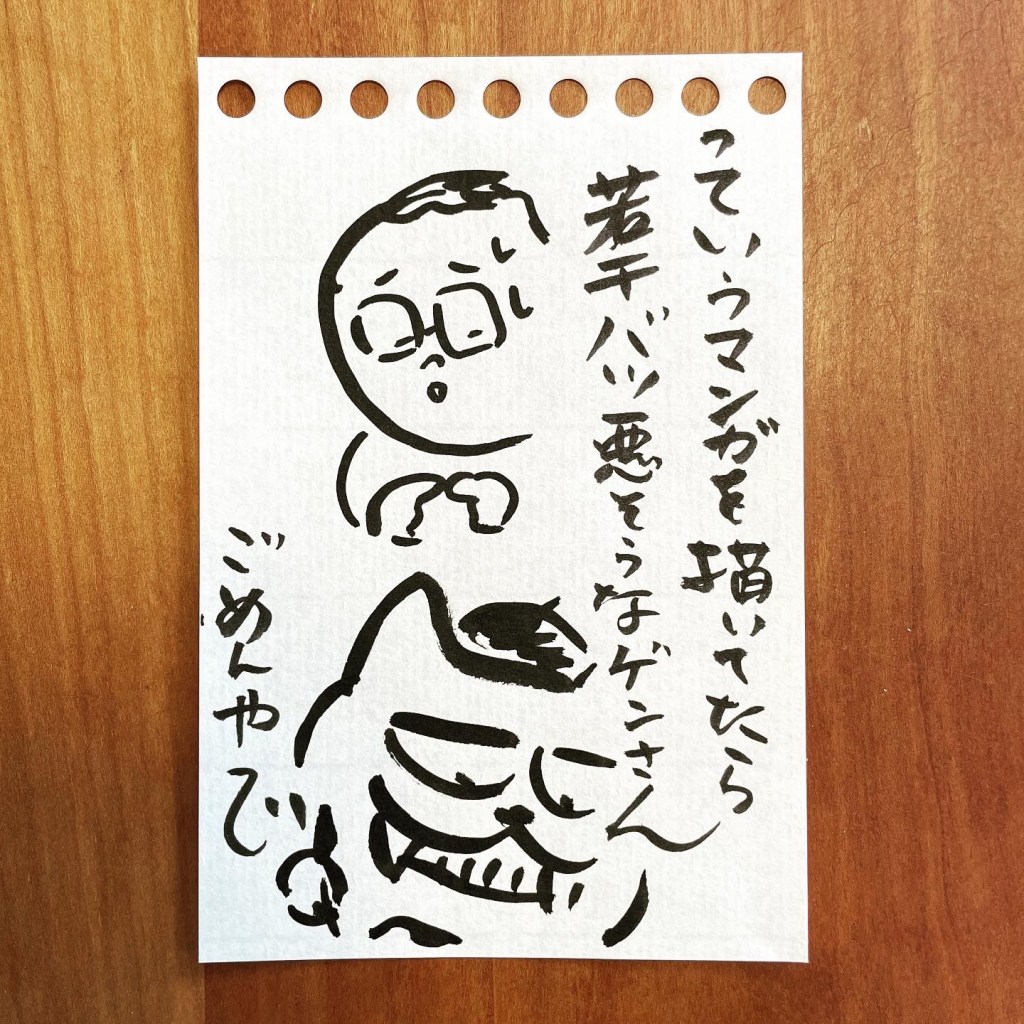 っていうマンガを描いてたら
若干バツ悪そうなゲンさん
ごめんやで